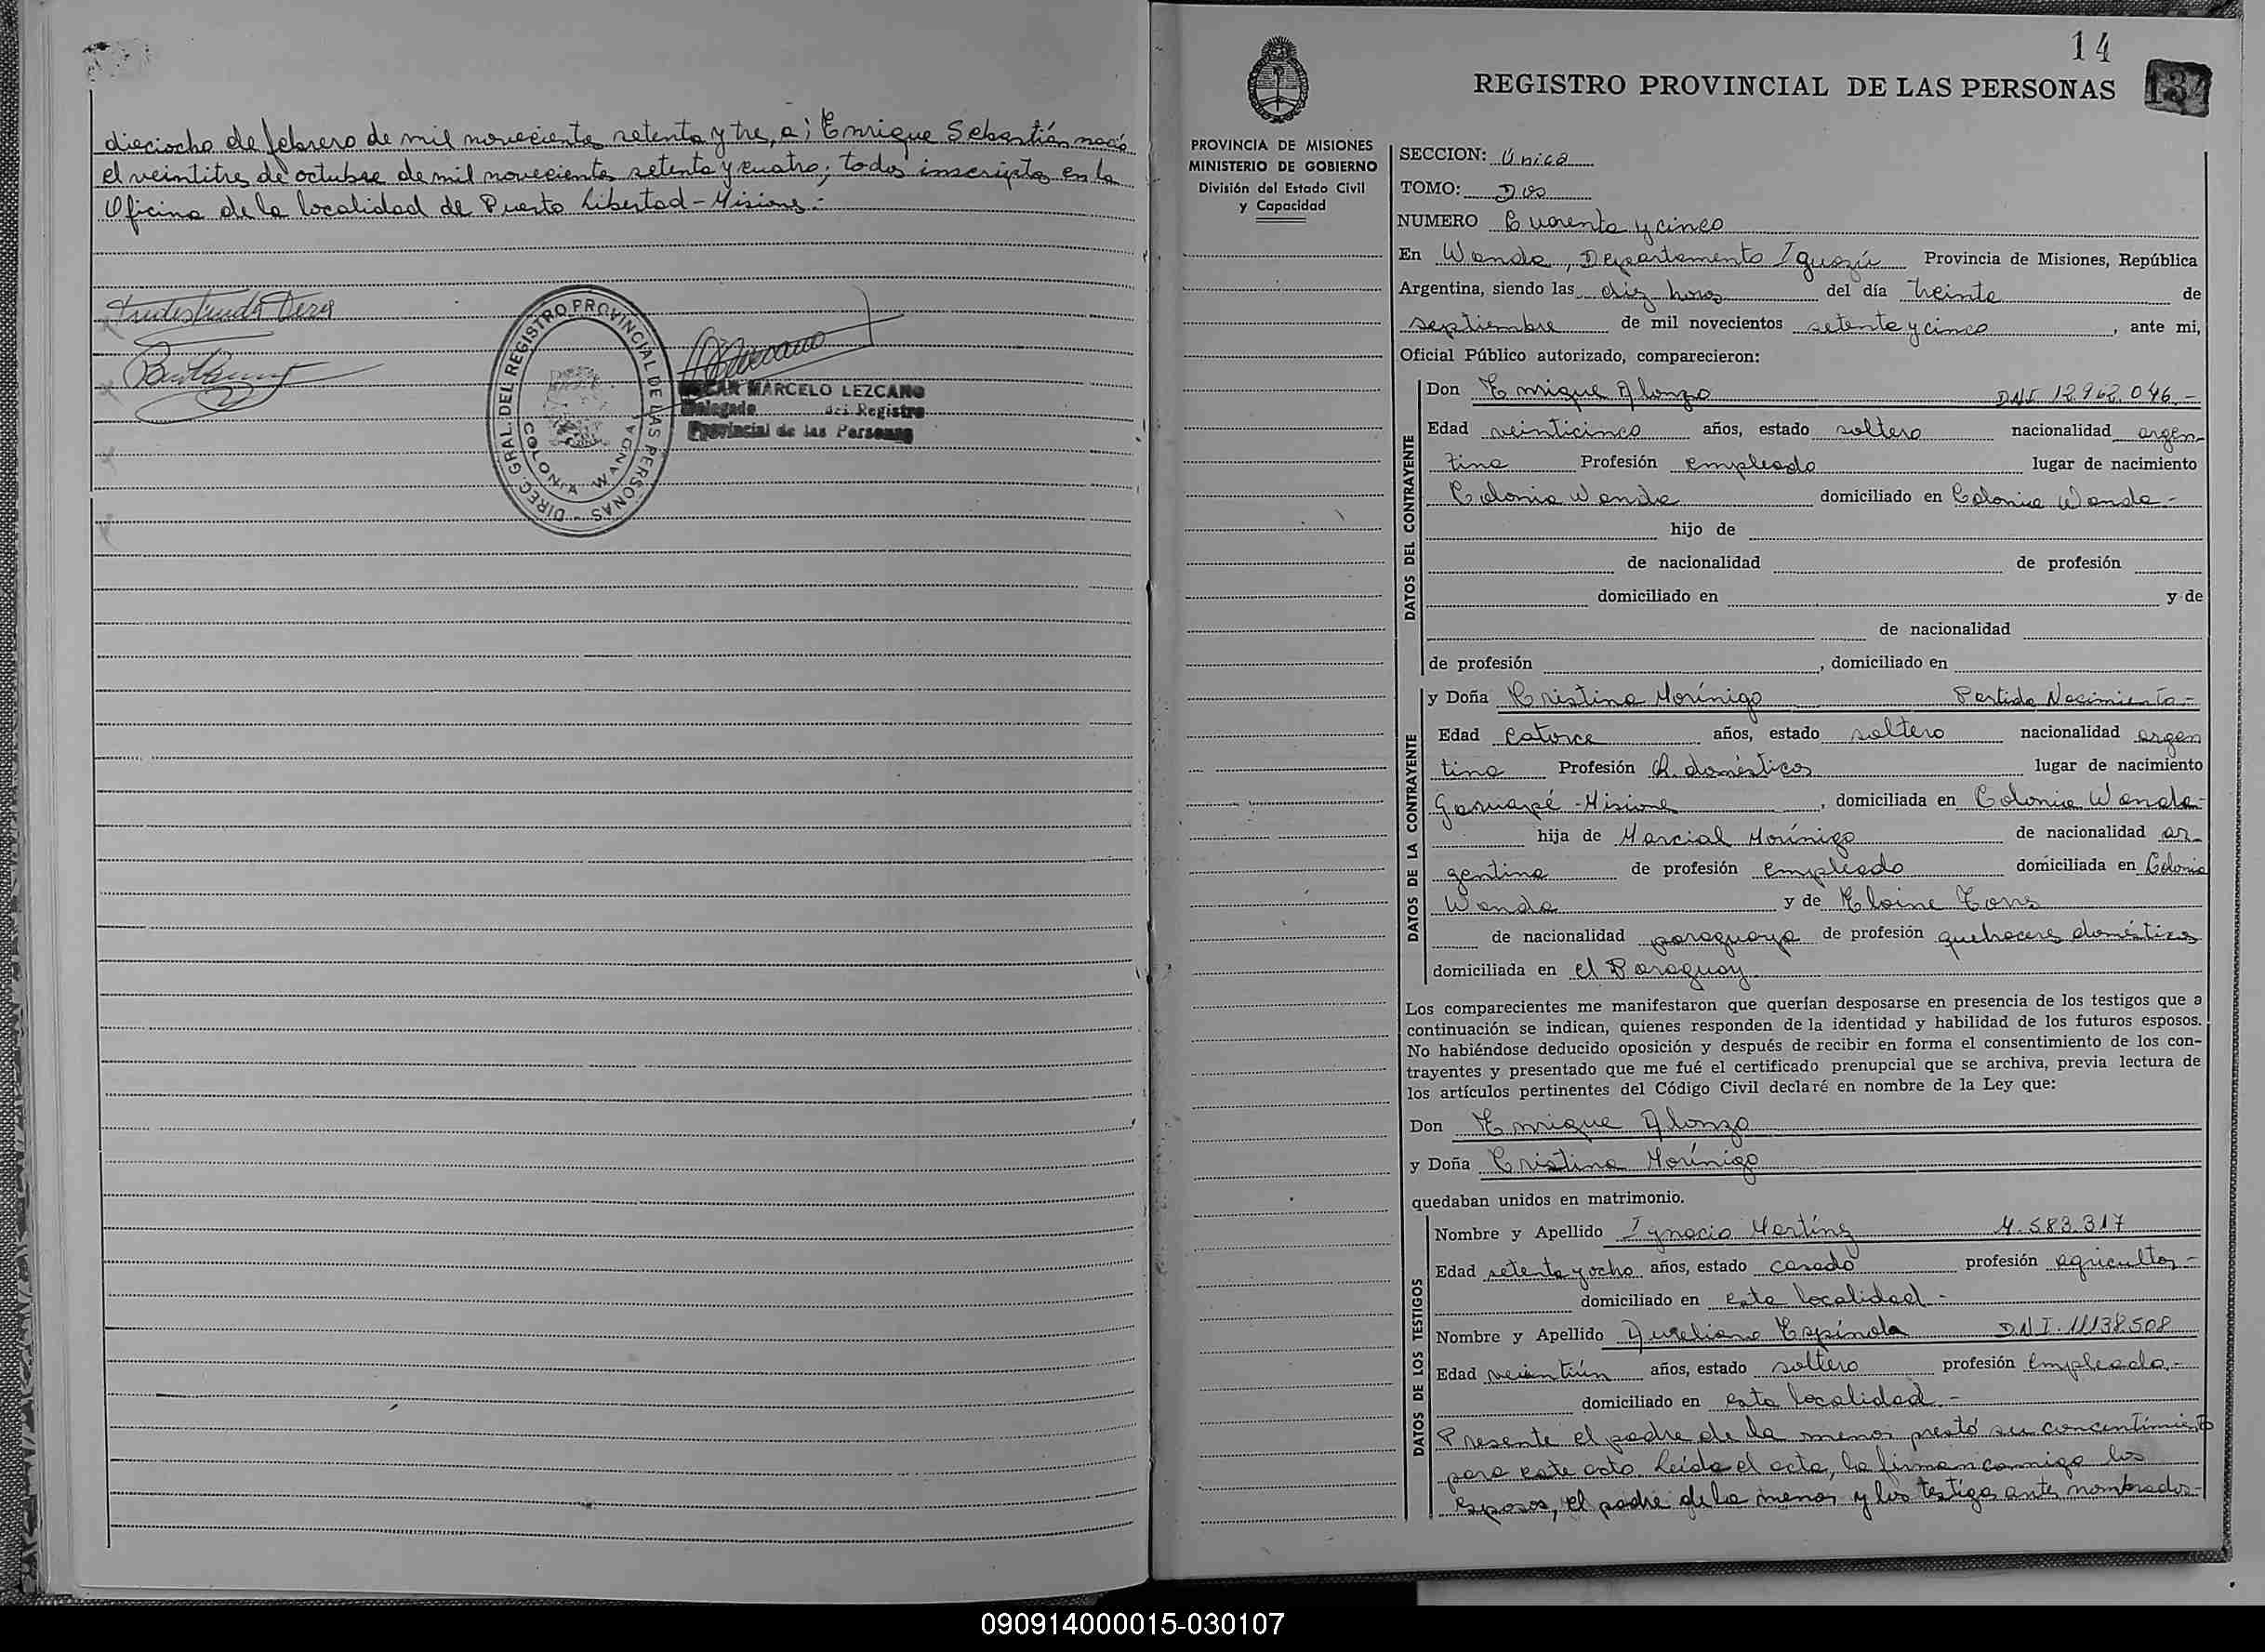 dieciocho de febrero de mil novecientos setenta y tres, a; Enrique Sebastián nació
el veintitres de octubre de mil novecientos setenta y cuatro; todos inscriptos en la
Oficina de la localidad de Puerto Libertad - Misiones.-
DIREC. GRAL. DEL REGISTRO PROVINCIAL DE LAS PERSONAS -
COLONIA WANDA
OSCAR MARCELO LEZCANO
Delegado del Registro
Provincial de las Personas
14
134
REGISTRO PROVINCIAL DE LAS PERSONAS
PROVINCIA DE MISIONES
MINISTERIO DE GOBIERNO
División del Estado Civil
y Capacidad
SECCION: Unica
TOMO: Dos
NUMERO Cuarenta y cinco
En Wanda, Departamento Iguazú Provincia de Misiones, República
Argentina, siendo las diez horas del día treinta de
septiembre de mil novecientos setenta y cinco, ante mi,
Oficial Público autorizado, comparecieron:
DATOS DEL CONTRAYENTE
Don Enrique Alonzo DNI 12.962.046.-
Edad veinticinco años, estado soltero nacionalidad argen-
tina Profesión empleado lugar de nacimiento
Colonia Wanda domiciliado en Colonia Wanda-
hijo de
de nacionalidad de profesión
domiciliado en y de
de nacionalidad
de profesión , domiciliado en
DATOS DE LA CONTRAYENTE
y Doña Cristina Morínigo Partida Nacimiento-
Edad catorce años, estado soltero nacionalidad argen
tina Profesión Q. domésticos lugar de nacimiento
Garuapé - Misiones, domiciliada en Colonia Wanda-
hija de Marcial Morínigo de nacionalidad ar-
gentina de profesión empleado domiciliada en Colonia
Wanda y de Elaine
de nacionalidad paraguaya de profesión quehaceres domésticos
domiciliada en el Paraguay
Los comparecientes me manifestaron que querían desposarse en presencia de los testigos que a
continuación se indican, quienes responden de la identidad y habilidad de los futuros esposos.
No habiéndose deducido oposición y después de recibir en forma el consentimiento de los con-
trayentes y presentado que me fué el certificado prenupcial que se archiva, previa lectura de
los artículos pertinentes del Código Civil declaré en nombre de la Ley que:
Don Enrique Alonzo
y Doña Cristina Morínigo
quedaban unidos en matrimonio.
DATOS DE LOS TESTIGOS
Nombre y Apellido Ignacio Martínez M. 583.317
Edad setenta y ocho años, estado casado profesión agricultor-
domiciliado en esta localidad-
Nombre y Apellido Aureliano Espínola DNI. 11138.508
Edad veintiún años, estado soltero profesión empleado.-
domiciliado en esta localidad.-
Presente el padre de la menor prestó su concentimiento
para este acto. Leída el acta, la firman conmigo los
esposos, el padre de la menor y los testigos antes nombrados-
090914000015-030107